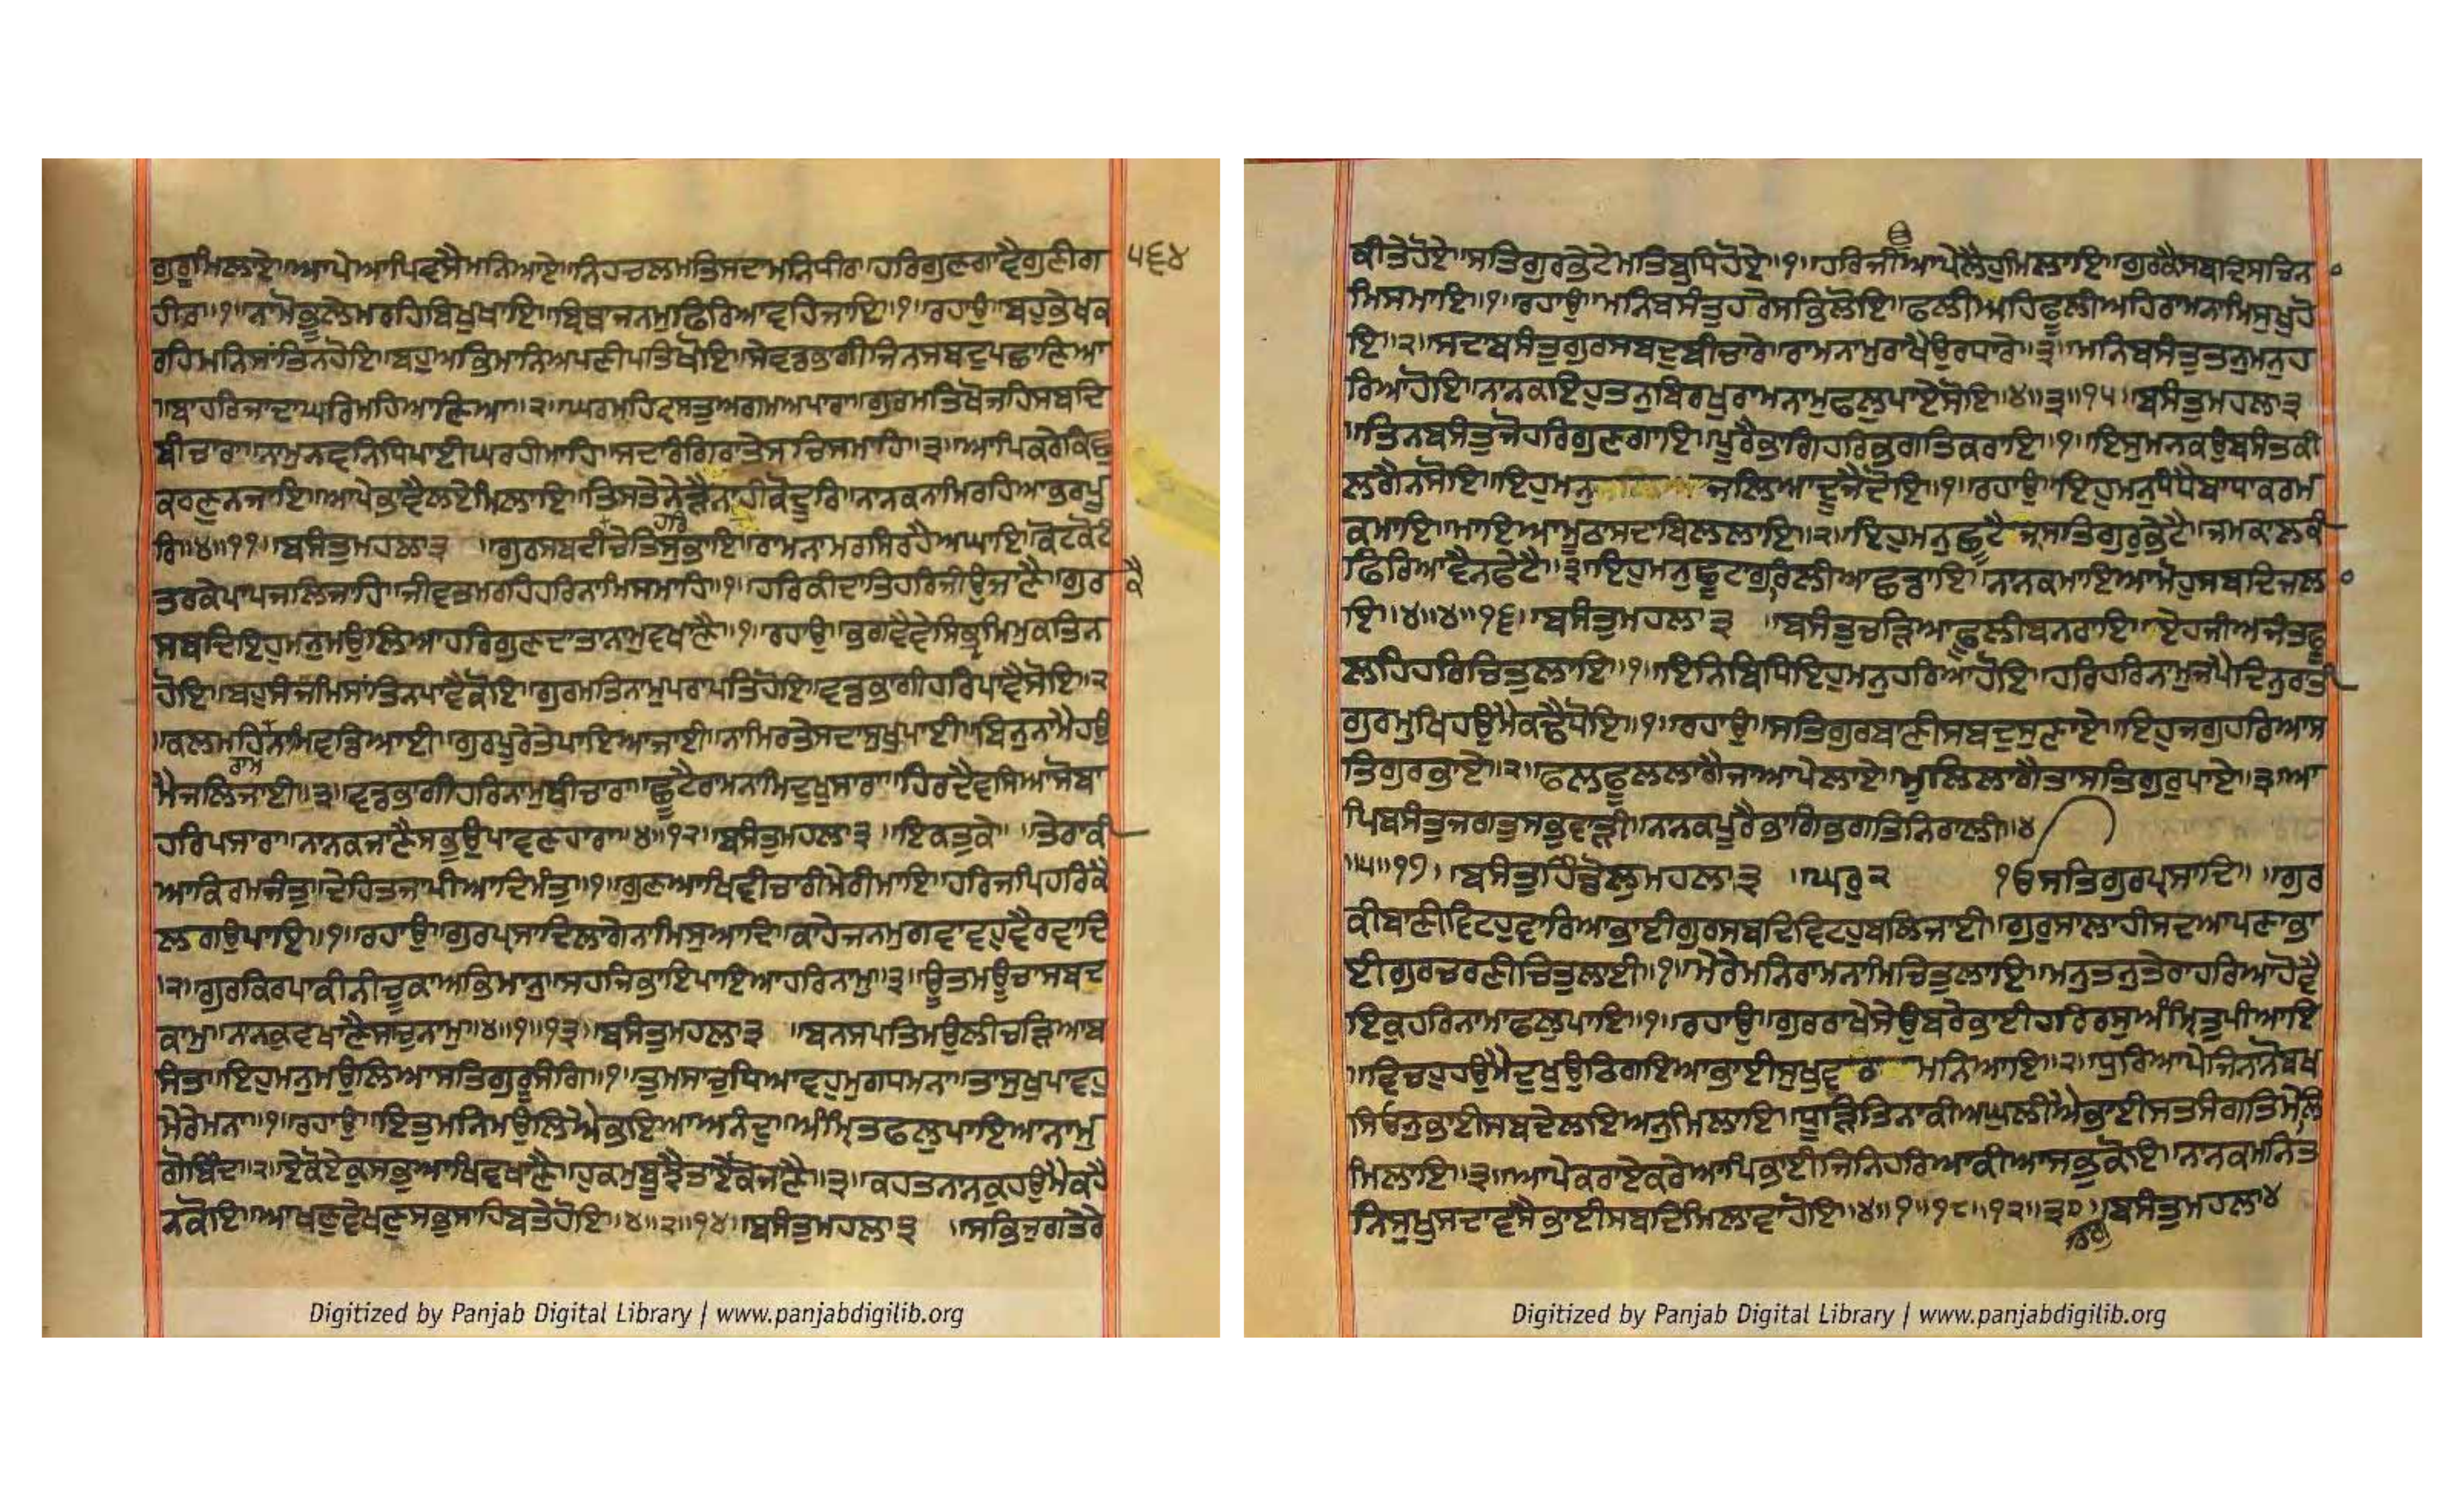 ਗੁਰੂਮਿਲਾਏ॥ਆਪੇਆਪਿਵਸੈਮਨਿਆਏ॥ਨਿਹਚਲਮਤਿਸਦਾਮਨਿਧੀਰਾ॥ਹਰਿਗੁਣਗਾਵੈਗੁਣੀਗ ੫੬੪
ਹੀਰਾ॥੧॥ਨਾਮੈਭੂਲੇਮਰਹਿਬਿਖੁਖਾਇ॥ਬ੍ਰਿਥਾਜਨਮੁਫਿਰਿਆਵਹਿਜਾਇ॥੧॥ਰਹਾਉ॥ਬਹੁਭੇਖਕ
ਰਹਿਮਨਿਸਾਂਤਿਨਹੋਇ॥ਬਹੁਅਭਿਮਾਨਿਅਪਣੀਪਤਿਖੋਇ॥ਸੇਵਡਭਾਗੀਜਿਨਸਬਦੁਪਛਾਣਿਆ
॥ਬਾਹਰਿਜਾਦਾਘਰਿਮਹਿਆਣਿਆ॥੨॥ਘਰਮਹਿਵਸਤੁਅਗਮਅਪਾਰਾ॥ਗੁਰਮਤਿਖੋਜਹਿਸਬਦਿ
ਬੀਚਾਰਾ॥ਨਾਮੁਨਵਨਿਧਿਪਾਈਘਰਹੀਮਾਹਿ॥ਸਦਾਰੰਗਿਰਾਤੇਸਚਿਸਮਾਹਿ॥੩॥ਆਪਿਕਰੇਕਿਛੁ
ਕਰਣੁਨਜਾਇ॥ਆਪੇਭਾਵੈਲਏਮਿਲਾਇ॥ਤਿਸਤੇਨੇੜੈਨਾਹੀਕੋਦੂਰਿ॥ਨਾਨਕਨਾਮਿਰਹਿਆਭਰਪੂ
ਰਿ॥੪॥੧੧॥ਬਸੰਤੁਮਹਲਾ੩ ॥ਗੁਰਸਬਦੀਚੇਤਿਸੁਭਾਇ॥ਰਾਮਨਾਮਰਸਿਰਹੈਅਘਾਇ॥ਕੋਟਕੋਟੰ
ਹਰਿ
ਤਰਕੇਪਾਪਜਲਿਜਾਹਿ॥ਜੀਵਤਮਰਹਿਹਰਿਨਾਮਿਸਮਾਹਿ॥੧॥ਹਰਿਕੀਦਾਤਿਹਰਿਜੀਉਜਾਣੈ॥ਗੁਰ ਕੈ
ਸਬਦਿਇਹੁਮਨੁਮਉਲਿਆਹਰਿਗੁਣਦਾਤਾਨਾਮੁਵਖਾਣੈ॥੧॥ਰਹਾਉ॥ਭਗਵੈਵੇਸਿਭ੍ਰਮਿਮੁਕਤਿਨ
ਹੋਇ॥ਬਹੁਸੰਜਮਿਸਾਂਤਿਨਪਾਵੈਕੋਇ॥ਗੁਰਮਤਿਨਾਮੁਪਰਾਪਤਿਹੋਇ॥ਵਡਭਾਗੀਹਰਿਪਾਵੈਸੋਇ॥੨
॥ਕਲਮਹਿਨਾਮਿਵਡਿਆਈ॥ਗੁਰਪੂਰੇਤੇਪਾਇਆਜਾਈ॥ਨਾਮਿਰਤੇਸਦਾਸੁਖੁਪਾਈ॥ਬਿਨੁਨਾਮੈਹਉ
ਰਾਮ
ਮੈਜਲਿਜਾਈ॥੩॥ਵਡਭਾਗੀਹਰਿਨਾਮੁਬੀਚਾਰਾ॥ਛੂਟੈਰਾਮਨਾਮਿਦੁਖੁਸਾਰਾ॥ਹਿਰਦੈਵਸਿਆਸੋਬਾ
ਹਰਿਪਸਾਰਾ॥ਨਾਨਕਜਾਣੈਸਭੁਉਪਾਵਣਹਾਰਾ॥੪॥੧੨॥ਬਸੰਤੁਮਹਲਾ੩ ॥ਇਕਤੁਕੇ ॥ਤੇਰਾਕੀ
ਆਕਿਰਮਜੰਤੁ॥ਦੇਹਿਤਜਾਪੀਆਦਿਮੰਤੁ॥੧॥ਗੁਣਆਖਿਵੀਚਾਰੀਮੇਰੀਮਾਇ॥ਹਰਿਜਪਿਹਰਿਕੈ
ਲਗਉਪਾਇ॥੧॥ਰਹਾਉ॥ਗੁਰਪ੍ਰਸਾਦਿਲਾਗੇਨਾਮਿਸੁਆਦਿ॥ਕਾਹੇਜਨਮੁਗਵਾਵਹੁਵੈਰਵਾਦਿ
॥੨॥ਗੁਰਕਿਰਪਾਕੀਨੀਚੂਕਾਅਭਿਮਾਨੁ॥ਸਹਜਿਭਾਇਪਾਇਆਹਰਿਨਾਮੁ॥੩॥ਊਤਮਊਚਾਸਬਦ
ਕਾਮੁ॥ਨਾਨਕੁਵਖਾਣੈਸਾਚੁਨਾਮੁ॥੪॥੧॥੧੩॥ਬਸੰਤੁਮਹਲਾ੩ ॥ਬਨਸਪਤਿਮਉਲੀਚੜਿਆਬ
ਸੰਤਾ॥ਇਹੁਮਨੁਮਉਲਿਆਸਤਿਗੁਰੂਸੰਗਿ॥੧॥ਤੁਮਸਾਚੁਧਿਆਵਹੁਮੁਗਧਮਨਾ॥ਤਾਸੁਖੁਪਾਵਹੁ
ਮੇਰੇਮਨਾ॥੧॥ਰਹਾਉ॥ਇਤੁਮਨਿਮਉਲਿਐਭਇਆਅਨੰਦੁ॥ਅੰਮ੍ਰਿਤਫਲੁਪਾਇਆਨਾਮੁ
ਗੋਬਿੰਦ॥੨॥ਏਕੋਏਕੁਸਭੁਆਖਿਵਖਾਣੈ॥ਹੁਕਮੁਬੂਝੈਤਾਏਕੋਜਾਣੈ॥੩॥ਕਹਤਨਾਨਕੁਹਉਮੈਕਹੈ
ਨਕੋਇ॥ਆਖਣੁਵੇਖਣੁਸਭੁਸਾਹਿਬਤੇਹੋਇ॥੪॥੨॥੧੪॥ਬਸੰਤੁਮਹਲਾ੩ ॥ਸਭਿਜੁਗਤੇਰੇ
ਕੀਤੇਹੋਏ॥ਸਤਿਗੁਰਭੇਟੇਮਤਿਬੁਧਿਹੋਏ॥੧॥ਹਰਿਜੀਆਪੇਲੈਹੁਮਿਲਾਇ॥ਗੁਰਕੈਸਬਦਿਸਚਿਨ
ਮਿਸਮਾਇ॥੧॥ਰਹਾਉ॥ਮਨਿਬਸੰਤੁਹਰੇਸਭਿਲੋਇ॥ਫਲੀਅਹਿਫੂਲੀਅਹਿਰਾਮਨਾਮਿਸੁਖੁਹੋ
ਇ॥੨॥ਸਦਾਬਸੰਤੁਗੁਰਸਬਦੁਬੀਚਾਰੇ॥ਰਾਮਨਾਮੁਰਾਖੈਉਰਧਾਰੇ॥੩॥ਮਨਿਬਸੰਤੁਤਨੁਮਨੁਹ
ਰਿਆਹੋਇ॥ਨਾਨਕਇਹੁਤਨੁਬਿਰਖੁਰਾਮਨਾਮੁਫਲੁਪਾਏਸੋਇ॥੪॥੩॥੧੫॥ਬਸੰਤੁਮਹਲਾ੩
॥ਤਿਨਬਸੰਤੁਜੋਹਰਿਗੁਣਗਾਇ॥ਪੂਰੈਭਾਗਿਹਰਿਭਗਤਿਕਰਾਇ॥੧॥ਇਸੁਮਨਕਉਬਸੰਤਕੀ
ਲਗੈਨਸੋਇ॥ਇਹੁਮਨੁ ਜਲਿਆਦੂਜੈਦੋਇ॥੧॥ਰਹਾਉ॥ਇਹੁਮਨੁਧੰਧੈਬਾਧਾਕਰਮ
ਕਮਾਇ॥ਮਾਇਆਮੂਠਾਸਦਾਬਿਲਲਾਇ॥੨॥ਇਹੁਮਨੁਛੂਟੈਜਸਤਿਗੁਰੁਭੇਟੈ॥ਜਮਕਾਲਕੀ
ਫਿਰਿਆਵੈਨਫੇਟੈ॥੩॥ਇਹੁਮਨੁਛੂਟਾਗੁਰਿਲੀਆਛਡਾਇ॥ਨਾਨਕਮਾਇਆਮੋਹੁਸਬਦਿਜਲਾ
ਇ॥੪॥੪॥੧੬॥ਬਸੰਤੁਮਹਲਾ੩ ॥ਬਸੰਤੁਚੜਿਆਫੂਲੀਬਨਰਾਇ॥ਏਹਜੀਅਜੰਤਫੂ
ਲਹਿਹਰਿਚਿਤੁਲਾਇ॥੧॥ਇਨਿਬਿਧਿਇਹੁਮਨੁਹਰਿਆਹੋਇ॥ਹਰਿਹਰਿਨਾਮੁਜਪੈਦਿਨੁਰਾਤੀ
ਗੁਰਮੁਖਿਹਉਮੈਕਢੈਧੋਇ॥੧॥ਰਹਾਉ॥ਸਤਿਗੁਰਬਾਣੀਸਬਦੁਸੁਣਾਏ॥ਇਹੁਜਗੁਹਰਿਆਸ
ਤਿਗੁਰਭਾਏ॥੨॥ਫਲਫੂਲਲਾਗੈਜਾਆਪੇਲਾਏ॥ਮੂਲਿਲਾਗੈਤਾਸਤਿਗੁਰੁਪਾਏ॥੩॥ਆ
ਪਿਬਸੰਤੁਜਗਤੁਸਭੁਵਾੜੀ॥ਨਾਨਕਪੂਰੈਭਾਗਿਭਗਤਿਨਿਰਾਲੀ॥੪
॥੫॥੧੭॥ਬਸੰਤੁਹਿੰਡੋਲੁਮਹਲਾ੩ ॥ਘਰੁ੨ ੴਸਤਿਗੁਰਪ੍ਰਸਾਦਿ॥ ॥ਗੁਰ
ਕੀਬਾਣੀਵਿਟਹੁਵਾਰਿਆਭਾਈਗੁਰਸਬਦਿਵਿਟਹੁਬਲਿਜਾਈ॥ਗੁਰੁਸਾਲਾਹੀਸਦਆਪਣਾਭਾ
ਈਗੁਰਚਰਣੀਚਿਤੁਲਾਈ॥੧॥ਮੇਰੇਮਨਿਰਾਮਨਾਮਿਚਿਤੁਲਾਇ॥ਮਨੁਤਨੁਤੇਰਾਹਰਿਆਹੋਵੈ
ਇਕੁਹਰਿਨਾਮਾਫਲੁਪਾਇ॥੧॥ਰਹਾਉ॥ਗੁਰਰਾਖੇਸੇਉਬਰੇਭਾਈਹਰਿਰਸੁਅੰਮ੍ਰਿਤੁਪੀਆਇ
॥ਵਿਚਹੁਹਉਮੈਦੁਖੁਉਠਿਗਇਆਭਾਈਸੁਖੁਵੁਠਾ ਮਨਿਆਇ॥੨॥ਧੁਰਿਆਪੇਜਿਨਨੋਬਖ
ਸਿਓਨੁਭਾਈਸਬਦੇਲਇਅਨੁਮਿਲਾਇ॥ਧੂੜਿਤਿਨਾਕੀਅਘੁਲੀਐਭਾਈਸਤਸੰਗਤਿਮੇਲਿ
ਮਿਲਾਇ॥੩॥ਆਪੇਕਰਾਏਕਰੇਆਪਿਭਾਈਜਿਨਿਹਰਿਆਕੀਆਸਭੁਕੋਇ॥ਨਾਨਕਮਨਿਤ
ਨਿਸੁਖੁਸਦਾਵਸੈਭਾਈਸਬਦਿਮਿਲਾਵਾਹੋਇ॥੪॥੧॥੧੮॥੧੨॥੩੦॥ਬਸੰਤੁਮਹਲਾ੪
Digitized by Panjab Digital Library | www.panjabdigilib.org
Digitized by Panjab Digital Library | www.panjabdigilib.org